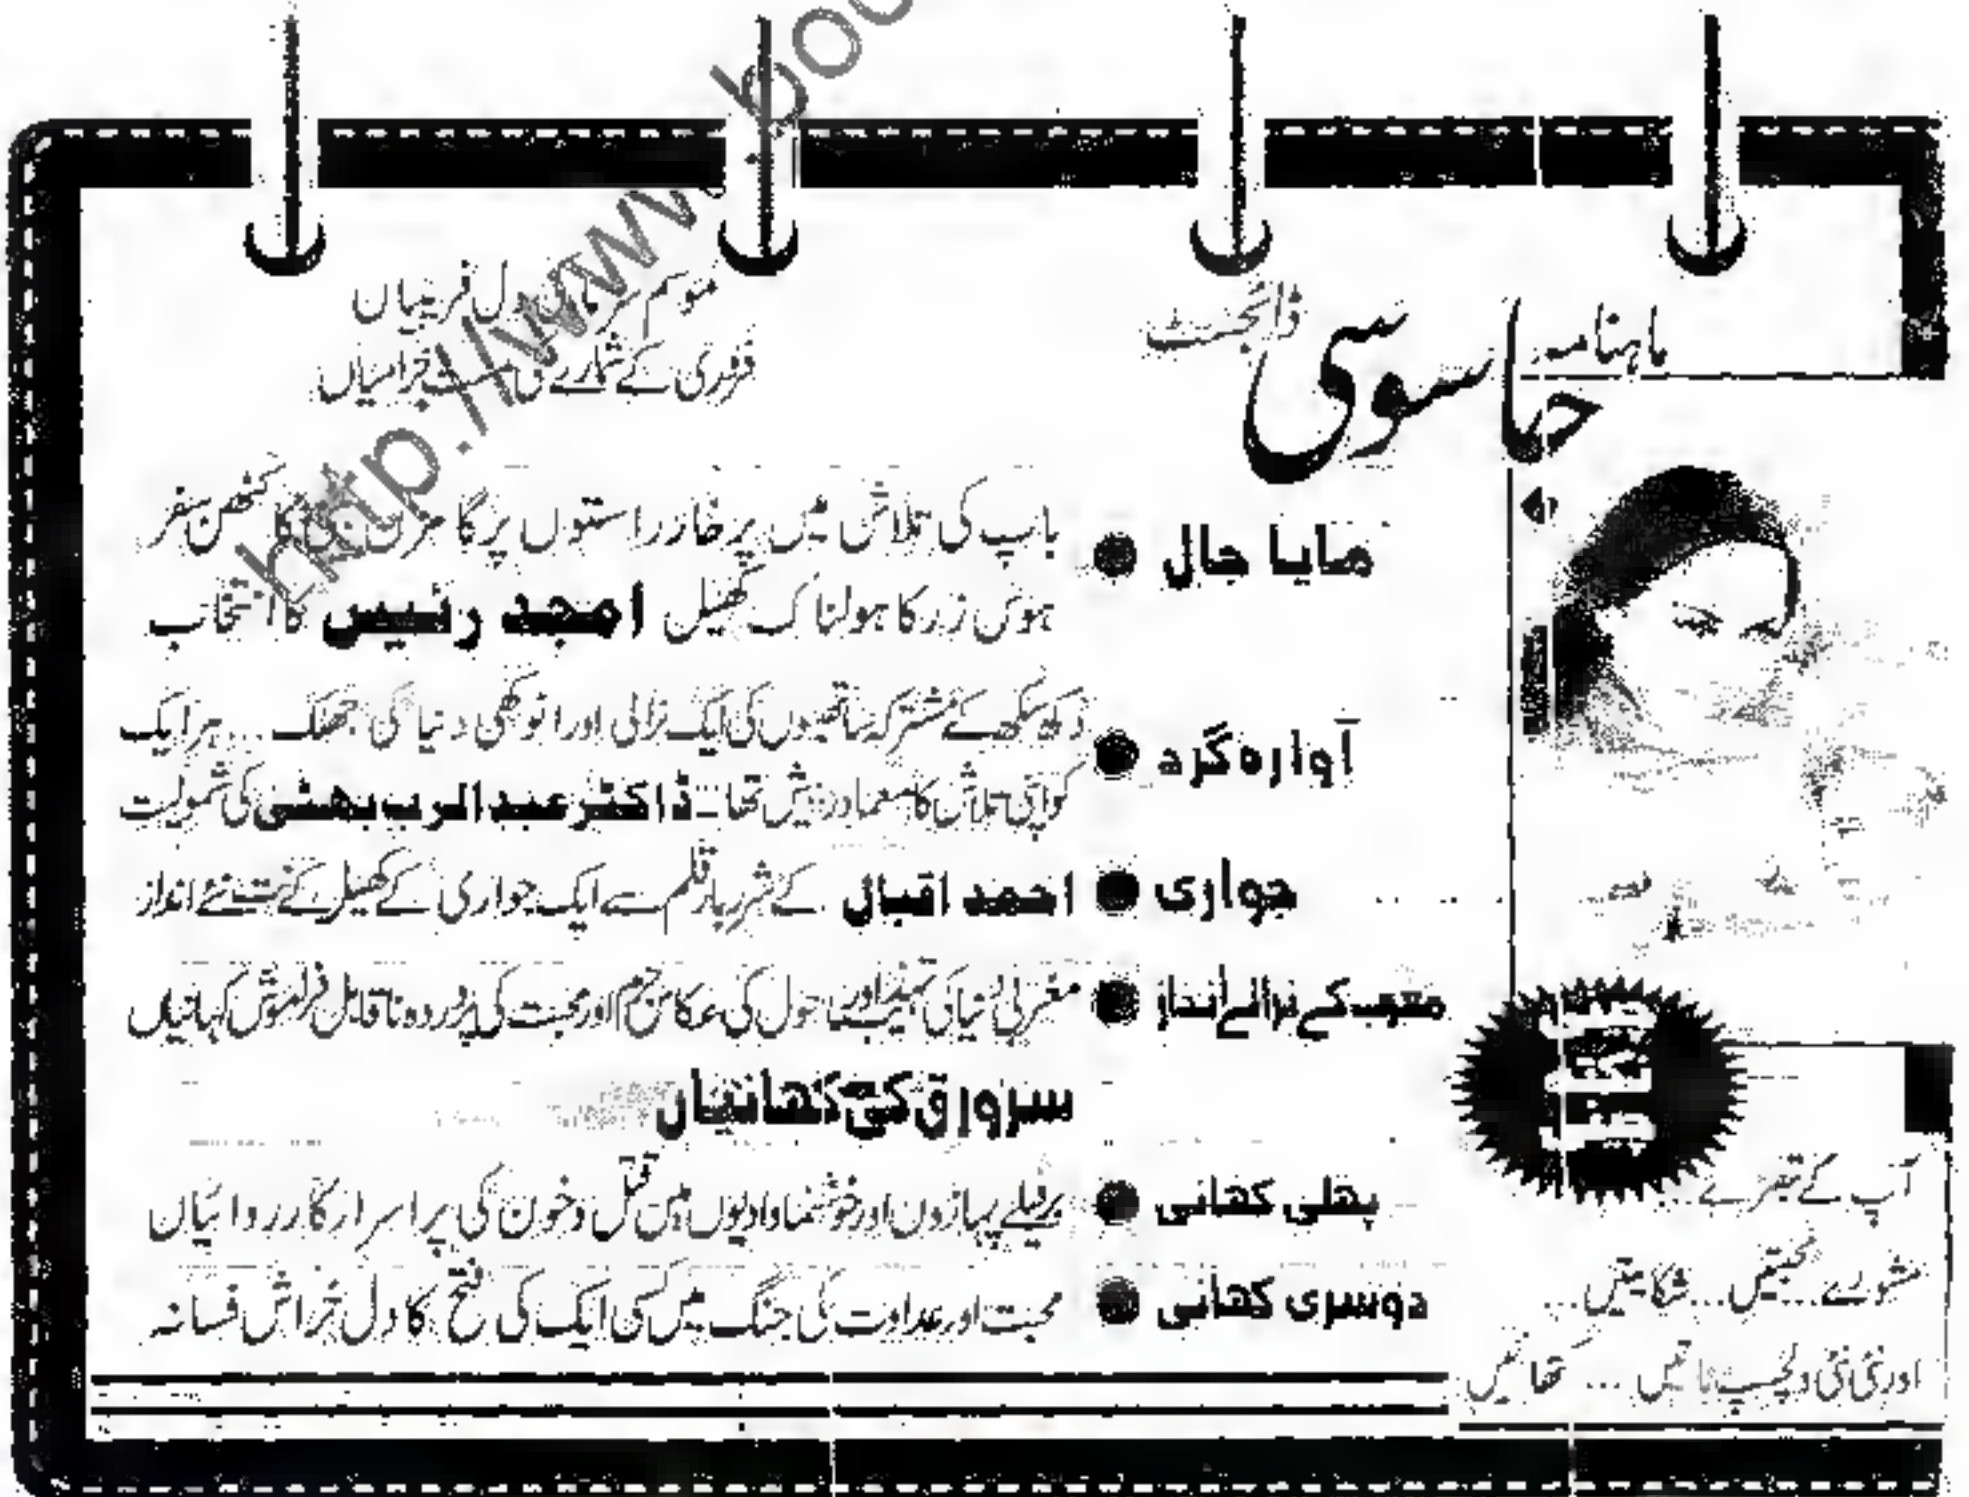 ماہنامہ
جاسوسی
ڈائجسٹ
موسم دل فریبیاں
فروری کے شمارے کی خرامیاں
مایا جال
باپ کی تلاش میں پرخار راستوں پر گامزن کا کٹھن سفر
ہوس زر کا ہولناک کھیل امجد رئیس کا انتخاب
آوارہ گرد
دکھ سکھ کے مشترکہ ساتھیوں کی ایک نرالی اور انوکھی دنیا کی جھلک ... ہر ایک
کو اپنی تلاش کا معما درپیش تھا... ڈاکٹر عبدالرب بھٹی کی شمولیت
جواری
احمد اقبال کے شرربار قلم سے ایک جواری کے کھیل کے نت نئے انداز
مغرب کے نرالے انداز
مغربی دنیا کی تہذیب اور ماحول کی عکاس جرم اور محبت کی پردرد ناقابل فراموش کہانیاں
سرورق کی کہانیاں
پہلی کہانی
برفیلے پہاڑوں اور خوشنما وادیوں میں قتل و خون کی پراسرار کارروائیاں
دوسری کہانی
محبت اور عداوت کی جنگ میں کسی ایک کی فتح کا دل خراش فسانہ
آپ کے تبصرے
مشورے... محبتیں... شکایتیں...
اور نئی نئی دلچسپ باتیں ... کتھائیں
http://www.